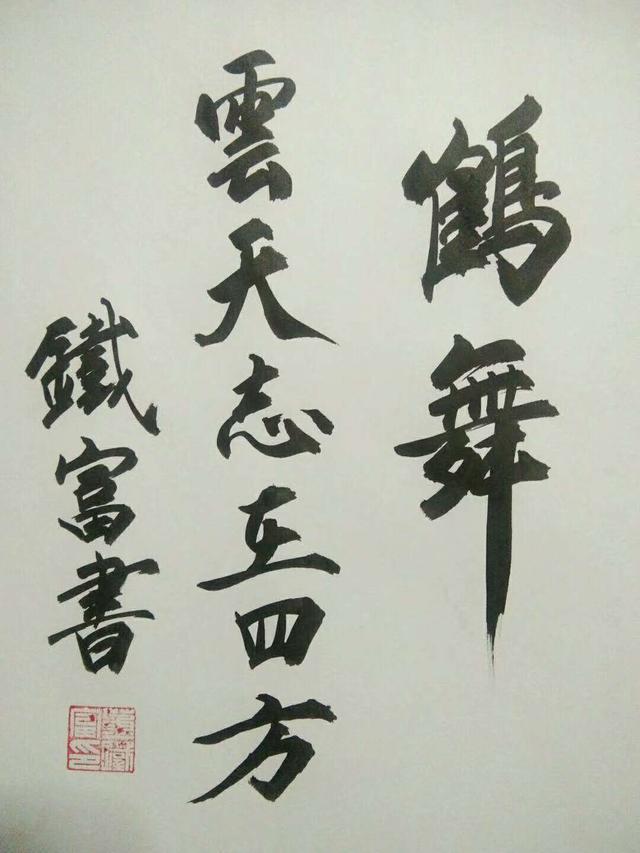 鶴舞
雲天志在四方
鐵富書